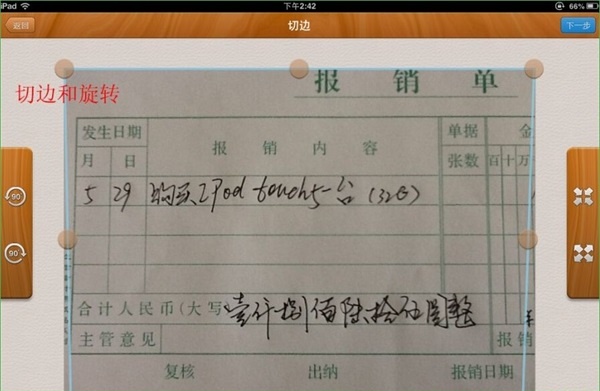 iPad 下午2:42 66%
返回 切边 下一步
切边和旋转
报销单
发生日期 报销内容 单据 金
月 日 张数 百十万
5 29 购买IPod touch5一台(32G)
90
90
合计人民币(大写 壹仟捌佰陆拾伍圆整
主管意见 报销
复核 出纳 报销日期